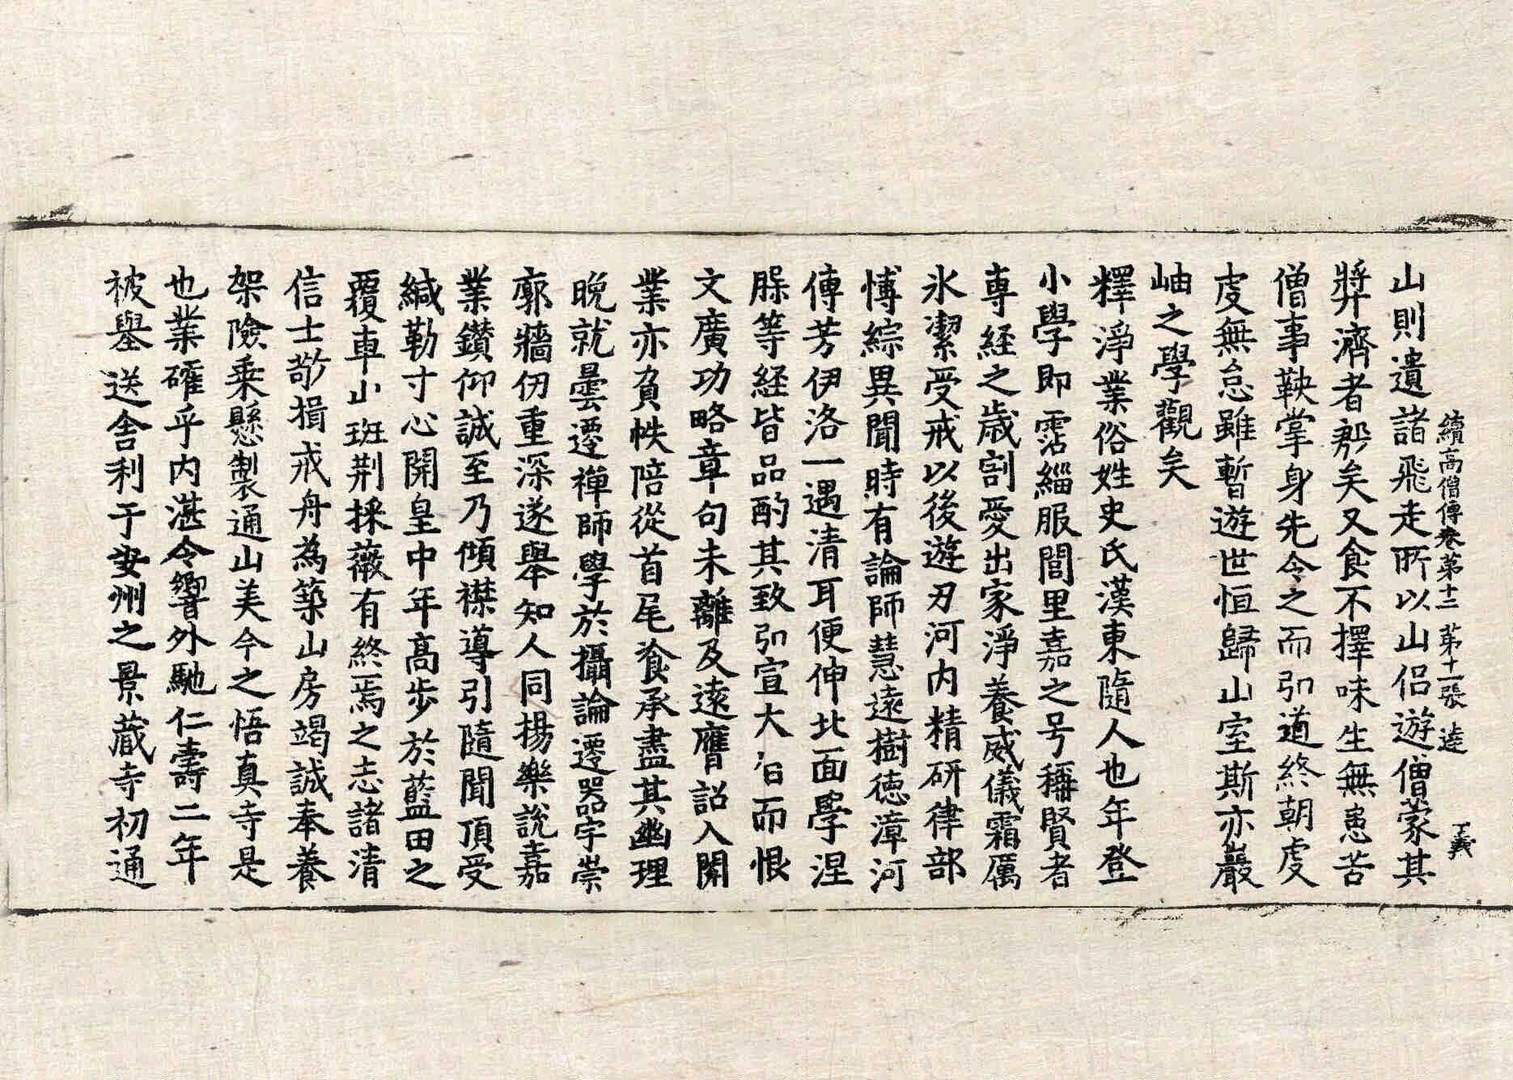 續高僧傳卷第十二 第十一張 逵 義
山則遺諸飛走所以山侶遊僧蒙其
弊濟者衆矣又食不擇味生無患苦
僧事鞅掌身先令之而弘道終朝虔
虔無怠雖暫遊世恒歸山室斯亦巖
岫之學觀矣
釋淨業俗姓史氏漢東隨人也年登
小學即霑緇服閭里嘉之号稱賢者
専經之歳割愛出家淨養威儀霜厲
氷潔受戒以後遊刃河内精研律部
博綜異聞時有論師慧遠樹德漳河
傳芳伊洛一遇清耳便伸北面學涅
槃等經皆品酌其致弘宣大旨而恨
文廣功略章句未離及遠膺詔入開
業亦負帙陪從首尾飡承盡其幽理
晚就曇遷禪師學於攝論遷器宇崇
廓牆仞重深遂舉知人同揚樂說嘉
業鑚仰誠至乃傾襟導引隨聞頂受
緘勒寸心開皇中年高步於藍田之
覆車山班荊採薇有終焉之志諸清
信士敬揖戒舟為築山房竭誠奉養
架險乗懸製通山美今之悟真寺是
也業確乎内湛令響外馳仁壽二年
被舉送舎利于安州之景蔵寺初通